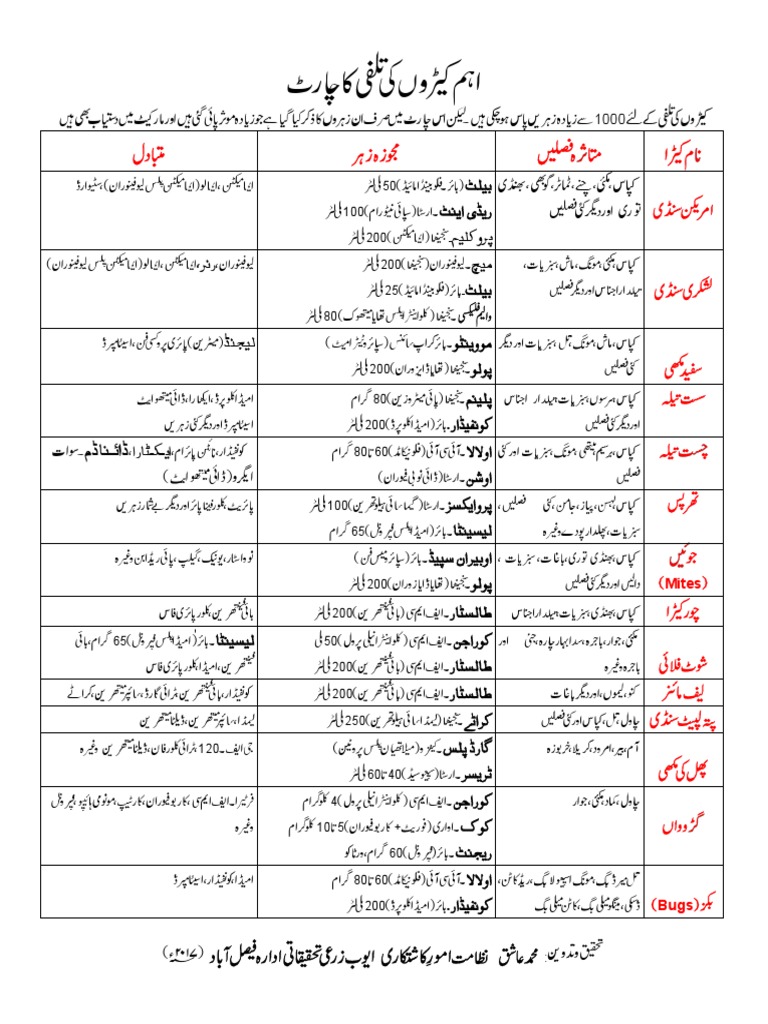 اہم کیڑوں کی تلفی کا چارٹ
کیڑوں کی تلفی کے لئے 1000 سے زیادہ زہریں پاس ہوچکی ہیں۔ لیکن اس چارٹ میں صرف ان زہروں کا ذکر کیا گیا ہے جو زیادہ موثر پائی گئی ہیں اور مارکیٹ میں دستیاب بھی ہیں
نام کیڑا متاثرہ فصلیں مجوزہ زہر متبادل
امریکن سنڈی
کپاس، مکئی، چنے، ٹماٹر، گوبھی، بھنڈی
توری اور دیگر کئی فصلیں
بیلٹ (بائر۔ فلوبینڈامائیڈ) 50 ملی لٹر
ریڈی اینٹ۔ ارسٹا (سپائی نیٹورام) 100 ملی لٹر
پروکلیم۔ سنجینٹا (ایمامیکٹن) 200 ملی لٹر
ایمامیکٹن، ایمالو (ایمامیکٹن پلس لیوفینوران) سٹیوارڈ
لشکری سنڈی
کپاس، مکئی، مونگ، ماش، سبزیات،
میلدار اجناس اور دیگر فصلیں
میچ۔ لیوفینوران (سنجینٹا) 200 ملی لٹر
بیلٹ۔ بائر (فلوبینڈامائیڈ) 25 ملی لٹر
والیم فلیکسی۔ سنجینٹا (کلورانٹر پلس تھایا میتھوکسم) 80 ملی لٹر
لیوفینوران، رنر، ایمامیکٹن، ایمالو (ایمامیکٹن پلس لیوفینوران)
سفید مکھی
کپاس، ماش، مونگ، تل، سبزیات اور دیگر
کئی فصلیں
مووینٹو۔ بائر کراپ سائنس (سپائروٹیٹرامیٹ)
پولو۔ سنجینٹا (تھایا ڈایا زوران) 200 ملی لٹر
لیجنڈ (میٹرین) پائری پروکسی فن، اسیٹامپرڈ
ست تیلہ
کپاس، سرسوں، سبزیات، میلدار اجناس
اور دیگر کئی فصلیں
پلینم۔ سنجینٹا (پائی میٹروزین) 80 گرام
کونفیڈار۔ بائر (امیڈاکلوپرڈ) 200 ملی لٹر
امیڈاکلوپرڈ، ایکٹارا، ڈائی میتھوایٹ
اسیٹامپرڈ اور دیگر کئی زہریں
چست تیلہ
کپاس، برسیم، میتھی، مونگ، سبزیات اور کئی
فصلیں
اولالا۔ آئی سی آئی (فلونیکامڈ) 60 تا 80 گرام
اوشن۔ ارسٹا (ڈائی نوٹی فیوران)
کونفیڈار، نائٹن پائرام، ایکٹارا، ڈائنا ڈم۔ سوات
ایگرو (ڈائی میتھوایٹ)
تھرپس
کپاس، لہسن، پیاز، جامن، کئی فصلیں،
سبزیات، پھلدار پودے وغیرہ
پروایکسز۔ ارسٹا (گیما سائی ہیلوتھرین) 100 ملی لٹر
لیسینٹا۔ بائر (امیڈا پلس فپرونل) 65 گرام
پائریٹ، کلورفینا پائر اور دیگر بے شمار زہریں
جوئیں
(Mites)
کپاس، بھنڈی توری، باغات، سبزیات،
دالیں اور دیگر کئی فصلیں
اوبیران سپیڈ۔ بائر (سپائرومیسی فن)
پولو۔ سنجینٹا (تھایا ڈایا زوران) 200 ملی لٹر
نوواسٹار، یونیک، گیلپ، پائی ریڈابن وغیرہ
چور کیڑا
کپاس، بھنڈی، سبزیات، میلدار اجناس
طالسٹار۔ ایف ایم سی (بائی فینتھرین) 200 ملی لٹر
بائی فینتھرین، کلورپائری فاس
شوٹ فلائی
مکئی، جوار، باجرہ، سدابہار چارہ چنی اور
باجرہ وغیرہ
کوراجن۔ ایف ایم سی (کلورانٹرانیلی پرول) 50 ملی
طالسٹار۔ ایف ایم سی (بائی فینتھرین) 200 ملی لٹر
لیسینٹا۔ بائر (امیڈا پلس فپرونل) 65 گرام، بائی
فینتھرین، امیڈا، کلورپائری فاس
لیف مائنر
کنو، لیموں، اور دیگر باغات
طالسٹار۔ ایف ایم سی (بائی فینتھرین) 200 ملی لٹر
کونفیڈار، بائی فینتھرین، ٹرائی گارڈ، سائپرمیتھرین، کراٹے
پتہ لپیٹ سنڈی
چاول، تل، کپاس اور کئی فصلیں
کراٹے۔ سنجینٹا (لیمڈا سائی ہیلوتھرین) 250 ملی لٹر
لیمڈا، سائپرمیتھرین، ڈیلٹامیتھرین
پھل کی مکھی
آم، بیر، امرود، کریلا، خربوزہ
گارڈ پلس۔ کینزو (میلاتھیان پلس پروٹین)
ٹریسر۔ ارسٹا (سپنوسیڈ) 40 تا 60 ملی لٹر
جی ایف۔120، ٹرائی کلورفان، ڈیلٹامیتھرین وغیرہ
گڑوواں
چاول، کماد، مکئی، جوار
کوراجن۔ ایف ایم سی (کلورانٹرانیلی پرول) 4 کلوگرام
کوک۔ اواری (فوریٹ + کاربوفیوران) 5 تا 10 کلوگرام
ریجنٹ۔ بائر (فپرونل) 60 گرام، ورٹاکو
فرٹیرا۔ ایف ایم سی، کاربوفیوران، کارٹیپ، مونومی ہائپو، فپرونل
وغیرہ
بگز (Bugs)
تل میرڈ بگ، مونگ اسپولا بگ، ریڈ کاٹن،
ڈسکی، بینگو ملی بگ، کاٹن ملی بگ
اولالا۔ آئی سی آئی (فلونیکامڈ) 60 تا 80 گرام
کونفیڈار۔ بائر (امیڈاکلوپرڈ) 200 ملی لٹر
امیڈا، کونفیڈار، اسیٹامپرڈ
تحقیق و تدوین: محمد عاشق نظامت امور کاشتکاری ایوب زرعی تحقیقاتی ادارہ فیصل آباد (۲۰۱۷ء)